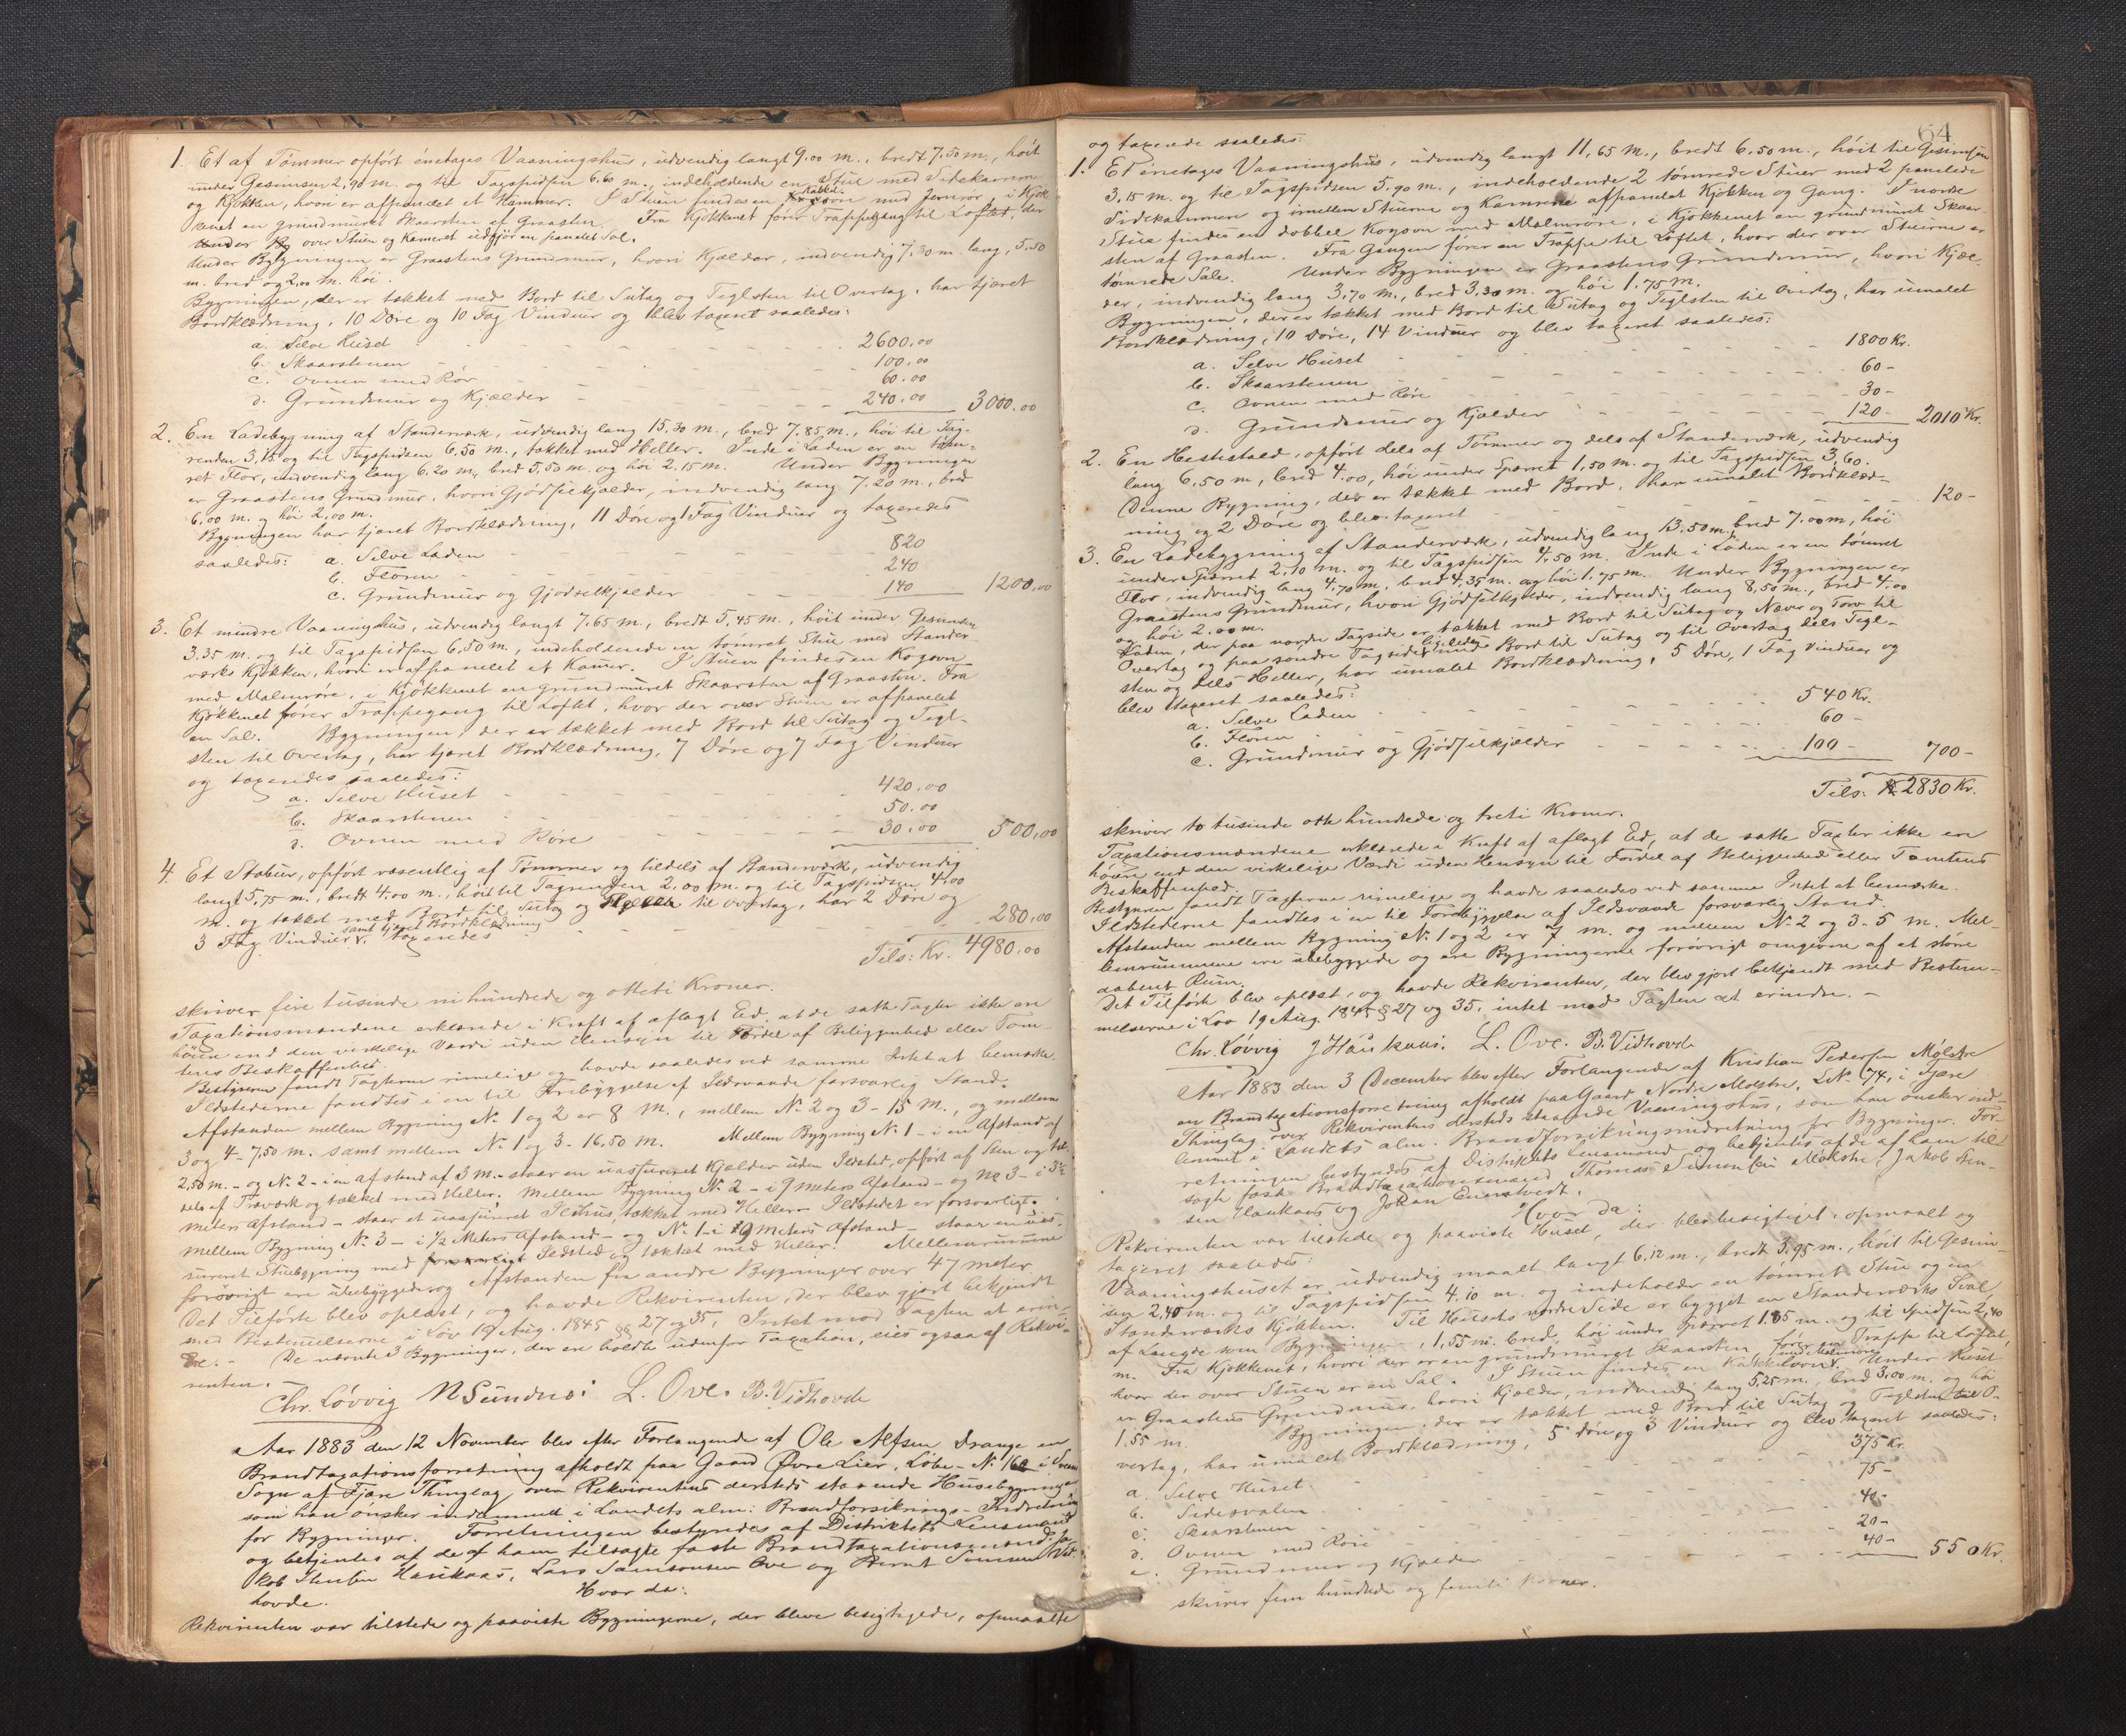 1. Et af Tömmer opført énetages Vaaningshus, udvendig langt 9,00 m., bredt 7,50 m., höit
under Gesimsen 2,90 m. og til Tagspidsen 6,60 m., indeholdende en Stue med Sidekammer
og Kjökken, hvori er afpanelet et Kammer. I Stuen findes en Kakkelovn med Jernrör i Kjök
kenet en grundmuret Skaarsten af Graasten. Fra Kjökkenet förer Trappegang til Loftet, der
over Stuen og Kameret udgjör en panelet Sal.
Under Bygningen er Graastens Grundmur, hvori Kjælder, indvendig 7,30 m. lang, 5,50
m. bred og 2,00 m. höi.
Bygningen, der er tækket med Bord til Sutag og Teglsten til Overtag, har tjæret
Bordklædning, 10 Döre og 10 Fag Vinduer og blev taxeret saaledes:
a. Selve Huset - 2600,00
b. Skaarstenen - 100,00
c. Ovnen med Rör - 60,00
d. Grundmur og Kjælder - 240,00 3000,00
2. En Ladebygning af Standerværk, udvendig lang 15,30 m., bred 7,85 m., höi til Tag-
renden 3,15 og til Tagspidsen 6,50 m., tækket med Heller. Inde i Laden er en töm-
ret Flor, indvendig lang 6,20 m., bred 5,50 m. og höi 2,15 m. Under Bygningen
er Graastens Grundmur, hvori Gjödselkjælder, indvendig lang 7,20 m., bred
6,00 m. og höi 2,00 m.
Bygningen har tjæret Bordklædning, 11 Döre og 1 Fag Vinduer og taxeredes
saaledes: a. Selve Laden - 820
b. Floren - 240
c. Grundmur og Gjödselkjælder - 140 1200,00
3. Et mindre Vaaningshus, udvendig langt 7,65 m., bredt 5,45 m., höit under Gesimsen
3,35 m. og til Tagspidsen 6,50 m., indeholdende en tömret Stue med Stander
værks Kjökken, hvori er afpanelet et Kamer. I Stuen findes en Kogovn
med Malmröre, i Kjökkenet en grundmuret Skaarsten af Graasten. Fra
Kjökkenet förer Trappegang til Loftet, hvor der over Stuen er afpanelet
en Sal. Bygningen, der er tækket med Bord til Sutag og Tegl-
sten til Overtag, har tjæret Bordklædning, 7 Döre og 7 Fag Vinduer
og taxeredes saaledes:
a. Selve Huset - 420,00
b. Skaarstenen - 50,00
c. Ovnen med Röre - 30,00 500,00
4. Et Stabur, opfört væsentlig af Tömmer og tildels af Standerværk, udvendig
langt 5,75 m., bredt 4,00 m., höit til Tagrenden 2,00 m. og til Tagspidsen 4,00
m. og tækket med Bord til Sutag og Heller til Overtag, har 2 Döre og
3 Fag Vinduer samt tjæret Bordklædning. taxeredes - 280,00
Tils: Kr. 4980,00
skriver fire tusinde ni hundrede og otteti Kroner.
Taxationsmændene erklærede i Kraft af aflagt Ed, at de satte Taxter ikke ere
höiere end den virkelige Værdi uden Hensyn til Fordel af Beliggenhed eller Tom-
tens Beskaffenhed.
Bestyreren fandt Taxterne rimelige og havde saaledes ved samme Intet at bemærke.
Ildstederne fandtes i en til Forebyggelse af Ildsvaade forsvarlig Stand.
Afstanden mellem Bygning No 1 og 2 er 8 m., mellem No 2 og 3 - 15 m., og mellem
3 og 4 - 7,50 m. samt mellem No 1 og 3 - 16,50 m. Mellem Bygning No 1 - i en Afstand af
2,50 m. - og No 2 - i en afstand af 3 m. - staar en uassureret Kjælder uden Ildsted, opfört af Sten og til-
dels af Træværk og tækket med Heller. Mellem Bygning No 2 - i 9 meters Afstand - og No 3 - i 3½
meters afstand - staar et uassureret Ildhus, tækket med Heller - Ildstedet er forsvarligt.
Mellem Bygning No 3 - i ½ Meters Afstand - og No 1 - i 19 meters afstand - staar en uas-
sureret Stuebygning med Ildsted og tækket med Heller. Mellemrummene
forövrigt ere ubebyggede og Afstanden fra andre Bygninger over 47 meter.
Det Tilförte blev oplæst, og havde Rekvirenten, der blev gjort bekjendt
med Bestemelserne i Lov 19 Aug. 1845 §§ 27 og 35, Intet mod Taxten at erin-
dre. - De nævnte 3 Bygninger, der ere holdte udenfor Taxation, eies ogsaa af Rekvi-
renten. -
Chr. Lövvig N Sundnes: L. Ove. B. Vidhovde
Aar 1883 den 12 November blev efter Forlangende af Ole Alfsen Drange en
Brandtaxationsforretning afholdt paa Gaard Övre Lier, Löbe-No 160 i
Sogn af Fjære Thinglag over Rekvirentens dersteds staaende Husebygninger
som han önsker indlemmet i Landets alm: Brandforsikrings-Indretning
for Bygninger. Forretningen bestyredes af Distriktets Lensmand
og betjentes af de af ham tilsagte faste Brandtaxationsmænd Ja-
kob Stensen Haukaas, Lars Samsonsen Ove og Bernt Simonsen Vid-
hovde. Hvor da:
Rekvirenten var tilstede og paaviste Bygningerne, der bleve besigtigede, opmaalte
64
og taxerede saaledes:
1. Et énetages Vaaningshus, udvendig langt 11,65 m., bredt 6,50 m., höit til Gesimsen
3,15 m. og til Tagspidsen 5,90 m., indeholdende 2 tömrede Stuer med 2 panelede
Sidekammere og imellem Stuerne og Kamrene afpanelet Kjökken og Gang. I nordre
Stue findes en dobbel Kogovn med Malmröre, i Kjökkenet en grundmuret Skaar-
sten af Graasten. Fra Gangen förer en Trappe til Loftet, hvor der over Stuerne er
tömrede Sale. Under Bygningen er Graastens Grundmur, hvori Kjæl-
der, indvendig lang 3,70 m., bred 3,30 m. og höi 1,75 m.
Bygningen, der er tækket med Bord til Sutag og Teglsten til Overtag, har umalet
Bordklædning, 10 Döre, 14 Vinduer og blev taxeret saaledes:
a. Selve Huset - 1800 Kr.
b. Skaarstenen - 60 -
c. Ovnen med Röre - 30 -
d. Grundmur og Kjælder - 120 - 2010 Kr.
2. En Hestestald, opført dels af Tömmer og dels af Standerværk, udvendig
lang 6,50 m, bred 4,00, höi under Spærret 1,50 m. og til Tagspidsen 3,60.
Denne Bygning, der er tækket med Bord, har umalet Bordklæd-
ning og 2 Döre og blev taxeret - 120 -
3. En Ladebygning af Standerværk, udvendig lang 13,50 m, bred 7,00 m, höi
under Spærret 2,10 m. og til Tagspidsen 4,50 m. Inde i Laden er en tömret
Flor, indvendig lang 4,70 m, bred 4,35 m. og höi 1,75 m. Under Bygningen er
Graastens Grundmur, hvori Gjödselkjælder, indvendig lang 8,50 m., bred 4,00
og höi 2,00 m.
Laden, der paa nordre Tagside er tækket med Bord til Sutag og Næver og Torv til
Overtag og paa söndre Tagside Bord til Sutag og til Overtag dels Tegl-
sten og dels Heller, har umalet Bordklædning, 5 Döre, 1 Fag Vinduer og
blev taxeret saaledes:
a. Selve Laden - 540 Kr.
b. Floren - 60 -
c. Grundmur og Gjödselkjælder - 100 - 700 -
Tils: 2830 Kr.
skriver to tusinde otte hundrede og treti Kroner.
Taxationsmændene erklærede i Kraft af aflagt Ed, at de satte Taxter ikke ere
höiere end den virkelige Værdi uden Hensyn til Fordel af Beliggenhed eller Tomtens
Beskaffenhed.
Bestyreren fandt Taxterne rimelige og havde saaledes ved samme Intet at bemærke.
Ildstederne fandtes i en til Forebyggelse af Ildsvaade forsvarlig Stand.
Afstanden mellem Bygning No 1 og 2 er 7 m. og mellem No 2 og 3 - 5 m. Mel-
lemrummene ere ubebyggede og ere Bygningerne forövrigt omgivne af et större
aabent Rum.
Det Tilförte blev oplæst, og havde Rekvirenten, der blev gjort bekjendt med Bestem-
melserne i Lov 19 Aug. 1845 § 27 og 35, intet mod Taxten at erindre. -
Chr. Lövvig J Haukaas: L. Ove. B. Vidhovde
Aar 1883 den 3 December blev efter Forlangende af Kristian Pedersen Molstre
en Brandtaxationsforretning afholdt paa Gaard Nordre Molstre, LNo 74, i Fjære
Thinglag over Rekvirentens dersteds staaende Vaaningshus, som han önsker ind-
lemmet i Landets alm. Brandforsikringsindretning for Bygninger. For-
retningen bestyredes af Distriktets Lensmand og betjentes af de af ham til
sagte faste Brandtaxationsmænd Thomas Simonsen Molstre, Jakob Sten-
sen Haukaas og Johan Evenstvedt.
Hvor da:
Rekvirenten var tilstede og paaviste Huset, der blev besigtiget, opmaalt og
taxeret saaledes:
Vaaningshuset er udvendig maalt langt 6,12 m., bredt 3,95 m., höit til Gesim-
sen 2,40 m. og til Tagspidsen 4,10 m. og indeholder en tömret Stue og en
Standerværks Kjökken. Til Husets nordre Side er bygget en Standerværks Sval
af Længde som Bygningen, 1,55 m. bred, höi under Spærret 1,85 m. og til Spidsen 2,40
m. Fra Kjökkenet, hvori der er en grundmuret Skaarsten, förer en Trappe til Loftet,
hvor der over Stuen er en Sal. I Stuen findes en Kakkelovn med Malmröre. Under Huset
er Graastens Grundmur, hvori Kjælder, indvendig lang 5,25 m., bred 3,00 m. og höi
1,55 m. Bygningen, der er tækket med Bord til Sutag og Teglsten til O-
vertag, har umalet Bordklædning, 5 Döre og 3 Vinduer og blev taxeret saaledes:
a. Selve Huset - 375 Kr.
b. Sidesvalen - 75 -
c. Skaarstenen - 40 -
d. Ovnen med Röre - 20 -
e. Grundmur og Kjælder - 40 - 550 Kr.
skriver fem hundrede og femti Kroner.